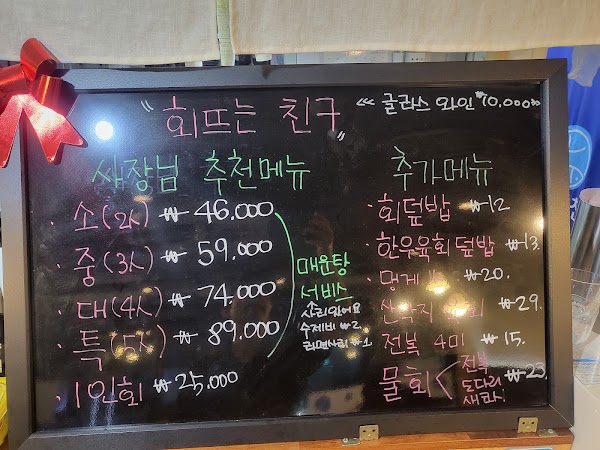 "회뜨는 친구"
<<< 글라스 와인 ₩70,000
쌔장님 추천메뉴
· 소(2人) ₩ 46.000
· 중(3人) ₩ 59.000
· 대(4人) ₩ 74.000
· 특(5人) ₩ 89.000
· 1인회 ₩25.000
매운탕
서비스
수제비 ₩2
라면사리 ₩1
추가메뉴
· 회덮밥 ₩12
· 한우육회덮밥 ₩13.
· 멍게 ₩20.
· 산낙지 ₩29.
· 전복 4미 ₩15.
· 물회 < 전복 도다리 새꼬시